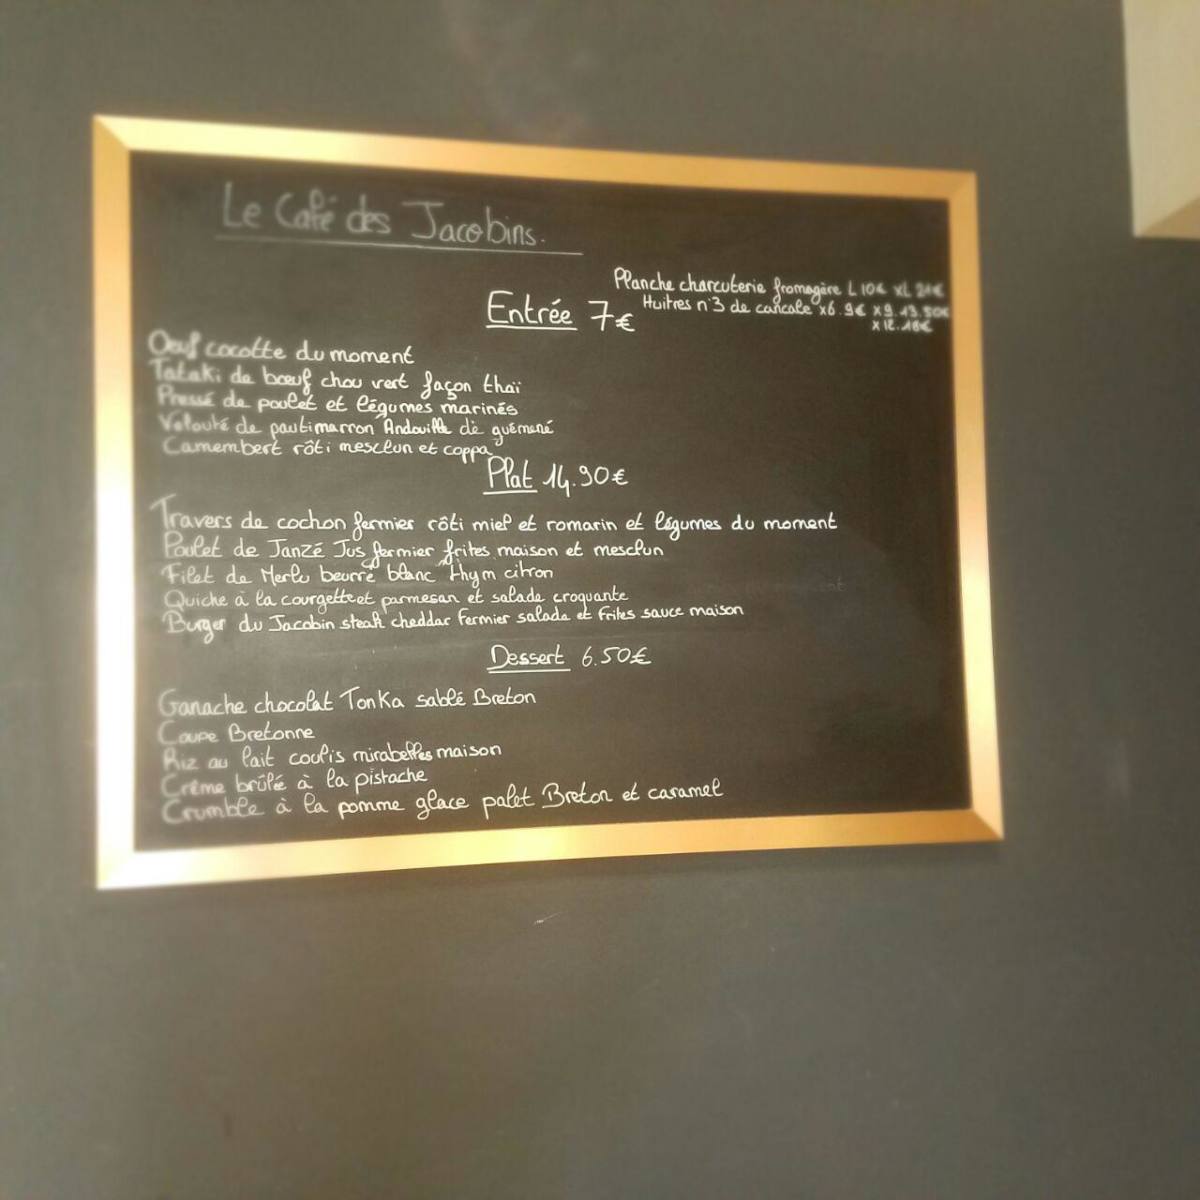 Le Café des Jacobins.
Planche charcuterie fromagère L 10€ XL 21€
Huitres n°3 de cancale x6.9€ x9.13.50€
x12.18€
Entrée 7€
Oeuf cocotte du moment
Tataki de bœuf chou vert façon thaï
Pressé de poulet et légumes marinés
Velouté de pautimarron Andouille de guémené
Camembert rôti mesclun et coppa
Plat 14.90€
Travers de cochon fermier rôti miel et romarin et légumes du moment
Poulet de Janzé Jus fermier frites maison et mesclun
Filet de Merlu beurre blanc thym citron
Quiche à la courgette et parmesan et salade croquante
Burger du Jacobin steak cheddar fermier salade et frites sauce maison
Dessert 6.50€
Ganache chocolat Tonka sablé Breton
Coupe Bretonne
Riz au lait coulis mirabelles maison
Crème brûlée à la pistache
Crumble à la pomme glace palet Breton et caramel